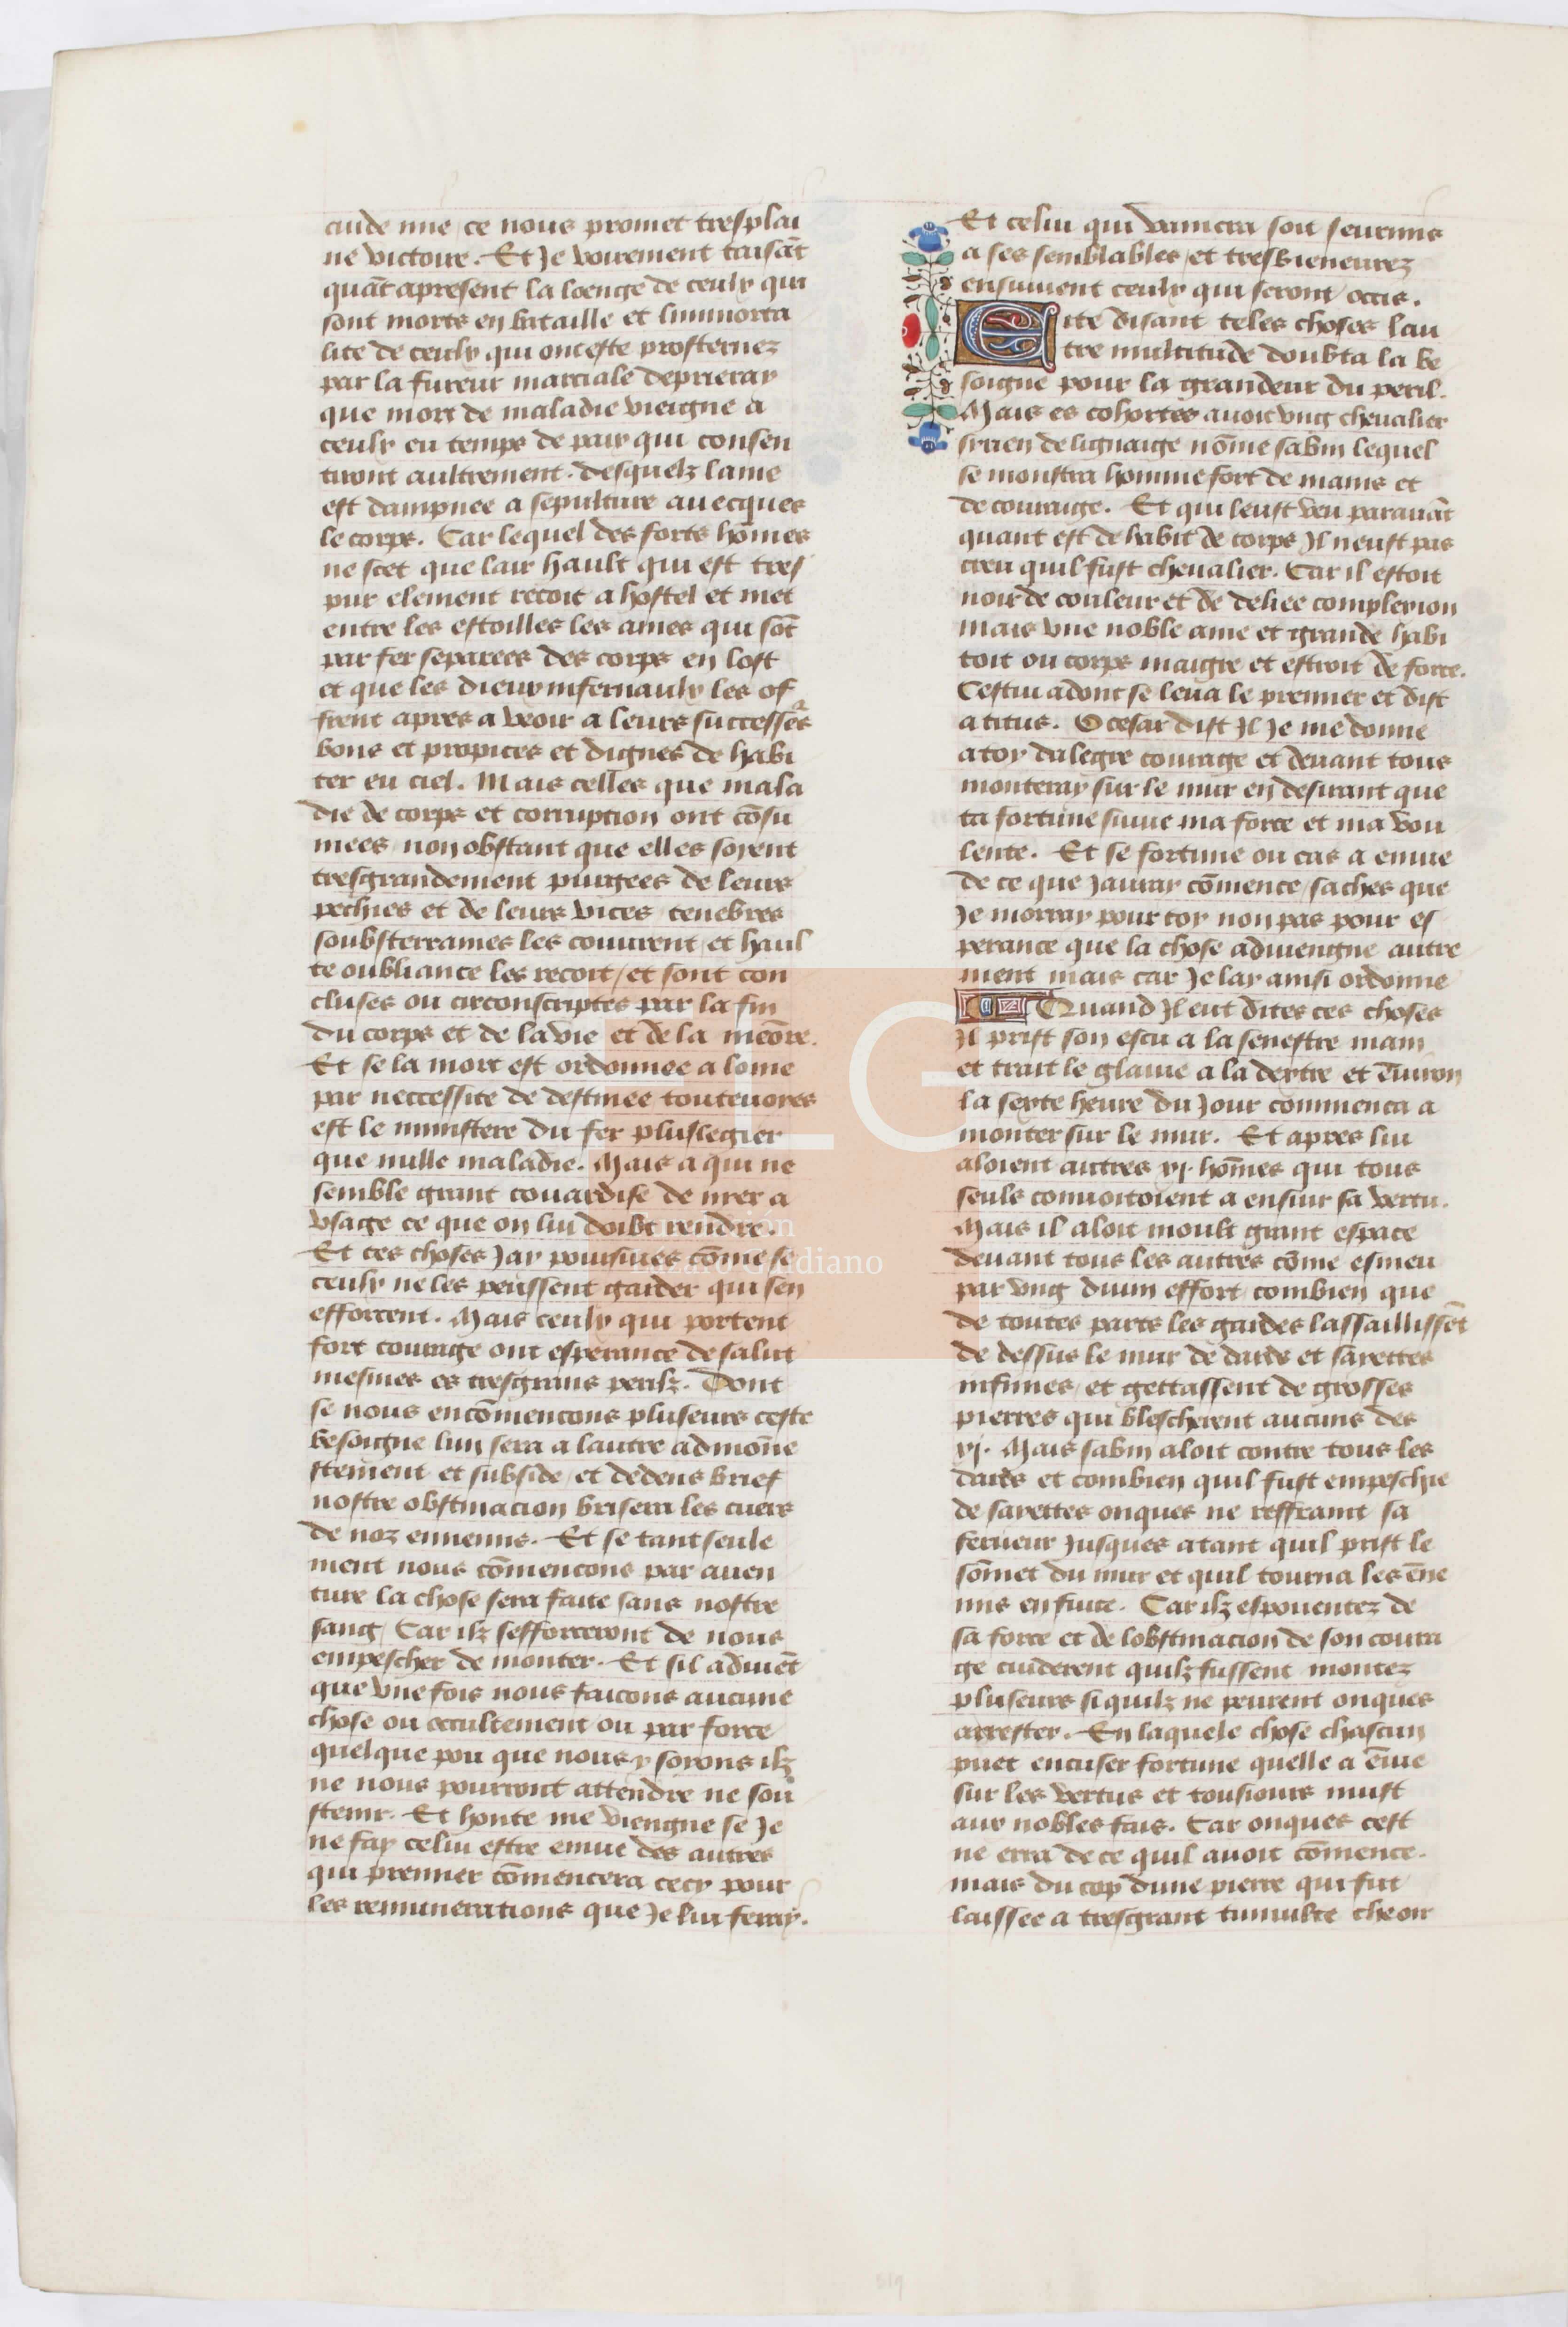 cuide mie ce nous promet tresplai
ne victoire. Et Je voirement taisāt
quāt apresent la loenge de ceulx qui
sont morts en bataille et limmorta
lite de ceulx qui ont este prosternez
par la fureur marciale deprieray
que mort de maladie viengne a
ceulx en temps de paix qui consen
tiront aultrement. desquelz lame
est dampnee a sepulture avecques
le corps. Car lequel des forts hōmes
ne scet que lair hault qui est tres
pur element recoit a hostel et met
entre les estoilles les ames qui sōt
par fer separees des corps en lost
et que les dieux infernaulx les of
frent apres a veoir a leurs successers
bons et propices et dignes de habi
ter eu ciel. Mais celles que mala
die de corps et corruption ont cōsu
mees non obstant que elles soyent
tresgrandement purgees de leurs
pechies et de leurs vices tenebres
soubsterraines les couvrent et haul
te oubliance les recoit / et sont con
cluses ou circonscriptes par la fin
du corps et de la vie et de la meōre.
Et se la mort est ordonnee a lome
par neccessite de destinee toutevoies
est le ministere du fer plus legier
que nulle maladie. Mais a qui ne
semble grant couardise de nier a
usage ce que on lui doibt rendre.
Et ces choses Jay poursuies cōme se
ceulx ne les peussent garder qui sen
efforcent. Mais ceulx qui portent
fort courage ont esperance de salut
mesmes es tresgrans perilz. Dont
se nous encōmencons pluseurs ceste
besoigne lun sera a lautre admōne
stement et subside / et dedens brief
nostre obstinacion brisera les cuers
de noz ennemis. Et se tant seule
ment nous cōmencons par aven
ture la chose sera faite sans nostre
sang / Car ilz sefforceront de nous
empescher de monter. Et sil adviēt
que une fois nous faicons aucune
chose ou occultement ou par force
quelque pou que nous y soyons ilz
ne nous pourront attendre ne sou
stenir. Et honte me viengne se Je
ne fay celui estre envie des autres
qui premier cōmencera cecy pour
les remunerations que Je lui feray.
Et celui qui vaincra soit seurmis
a ses semblables / et tresbieneurez
ensuivent ceulx qui seront occis.
Cite disant teles choses lau
tre multitude doubta la be
soigne pour la grandeur du peril.
Mais es cohortes avoit ung chevalier
sirien de lignaige nōme sabin lequel
se monstra homme fort de mains et
de couraige. Et qui leust veu paravāt
quant est de habit de corps Il neust pas
creu quil fust chevalier. Car il estoit
noir de couleur et de deliee complexion
mais une noble ame et grande habi
toit ou corps maigre et estroit de force.
Cestui adont se leva le premier et dist
a titus. O cesar dist Il Je me donne
a toy dalegre courage et devant tous
monteray sur le mur en desirant que
ta fortune suive ma force et ma vou
lente. Et se fortune ou cas a envie
de ce que Jauray cōmence / saches que
Je morray pour toy non pas pour es
perance que la chose adviengne autre
ment mais car Je lay ainsi ordonne
Quand Il eut dites ces choses
Il prist son escu a la senestre main
et trait le glaive a la dextre et ēviron
la sexte heure du Jour commenca a
monter sur le mur. Et apres lui
aloient autres xi. hōmes qui tous
seuls convoitoient a ensuir sa vertu.
Mais il aloit moult grant espace
devant tous les autres cōme esmeu
par ung divin effort combien que
de toutes parts les gardes lassaillissēt
de dessus le mur de dards et sayettes
infinies / et gettassent de grosses
pierres qui blescherent aucuns des
xi. Mais sabin aloit contre tous les
dards et combien quil fust empeschie
de sayettes onques ne reffraint sa
ferveur Jusques atant quil prist le
sōmet du mur et quil tourna les ēne
mis en fuite. Car ilz espouentez de
sa force et de lobstinacion de son coura
ge cuiderent quilz fussent montez
pluseurs si quilz ne peurent onques
arrester. En laquele chose chascun
puet encuser fortune quelle a ēvie
sur les vertus et tousiours nuist
aux nobles fais. Car onques cest
ne erra de ce quil avoit cōmence.
mais du cop dune pierre qui fut
laissee a tresgrant tumulte cheoir
FLG
Lázaro Galdiano